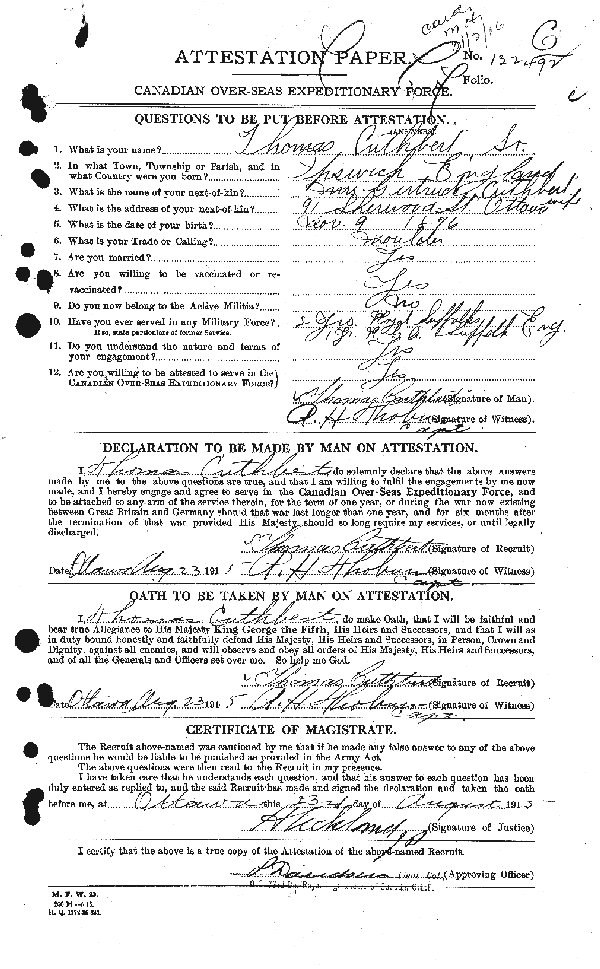 C
ATTESTATION PAPER.
No. 132492
Folio.
CANADIAN OVER-SEAS EXPEDITIONARY FORCE.
QUESTIONS TO BE PUT BEFORE ATTESTATION.
1. What is your name? Thomas Cuthbert Sr.
2. In what Town, Township or Parish, and in what Country were you born? Ipswich England
3. What is the name of your next-of-kin? Cuthbert
4. What is the address of your next-of-kin? 91 Sherwood St Ottawa wife
5. What is the date of your birth? Nov. 9 1876
6. What is your Trade or Calling? Moulder
7. Are you married? Yes
8. Are you willing to be vaccinated or re-vaccinated? Yes
9. Do you now belong to the Active Militia? No
10. Have you ever served in any Military Force? 2 Yrs. Suffolk Eng.
If so, state particulars of former Service.
11. Do you understand the nature and terms of your engagement? Yes
12. Are you willing to be attested to serve in the CANADIAN OVER-SEAS EXPEDITIONARY FORCE? Yes
Thomas Cuthbert (Signature of Man).
(Signature of Witness).
Capt.
DECLARATION TO BE MADE BY MAN ON ATTESTATION.
I, Thomas Cuthbert do solemnly declare that the above answers
made by me to the above questions are true, and that I am willing to fulfil the engagements by me now
made, and I hereby engage and agree to serve in the Canadian Over-Seas Expeditionary Force, and
to be attached to any arm of the service therein, for the term of one year, or during the war now existing
between Great Britain and Germany should that war last longer than one year, and for six months after
the termination of that war provided His Majesty should so long require my services, or until legally
discharged.
Thomas Cuthbert (Signature of Recruit)
Date Ottawa Aug 23 1915 (Signature of Witness)
Capt.
OATH TO BE TAKEN BY MAN ON ATTESTATION.
I, Thomas Cuthbert, do make Oath, that I will be faithful and
bear true Allegiance to His Majesty King George the Fifth, His Heirs and Successors, and that I will as
in duty bound honestly and faithfully defend His Majesty, His Heirs and Successors, in Person, Crown and
Dignity, against all enemies, and will observe and obey all orders of His Majesty, His Heirs and Successors,
and of all the Generals and Officers set over me. So help me God.
Thomas Cuthbert (Signature of Recruit)
Date Ottawa Aug 23 1915 (Signature of Witness)
Capt.
CERTIFICATE OF MAGISTRATE.
The Recruit above-named was cautioned by me that if he made any false answer to any of the above
questions he would be liable to be punished as provided in the Army Act.
The above questions were then read to the Recruit in my presence.
I have taken care that he understands each question, and that his answer to each question has been
duly entered as replied to, and the said Recruit has made and signed the declaration and taken the oath
before me, at Ottawa this 23rd day of August 1915
(Signature of Justice)
I certify that the above is a true copy of the Attestation of the above-named Recruit.
(Approving Officer)
M. F. W. 23.